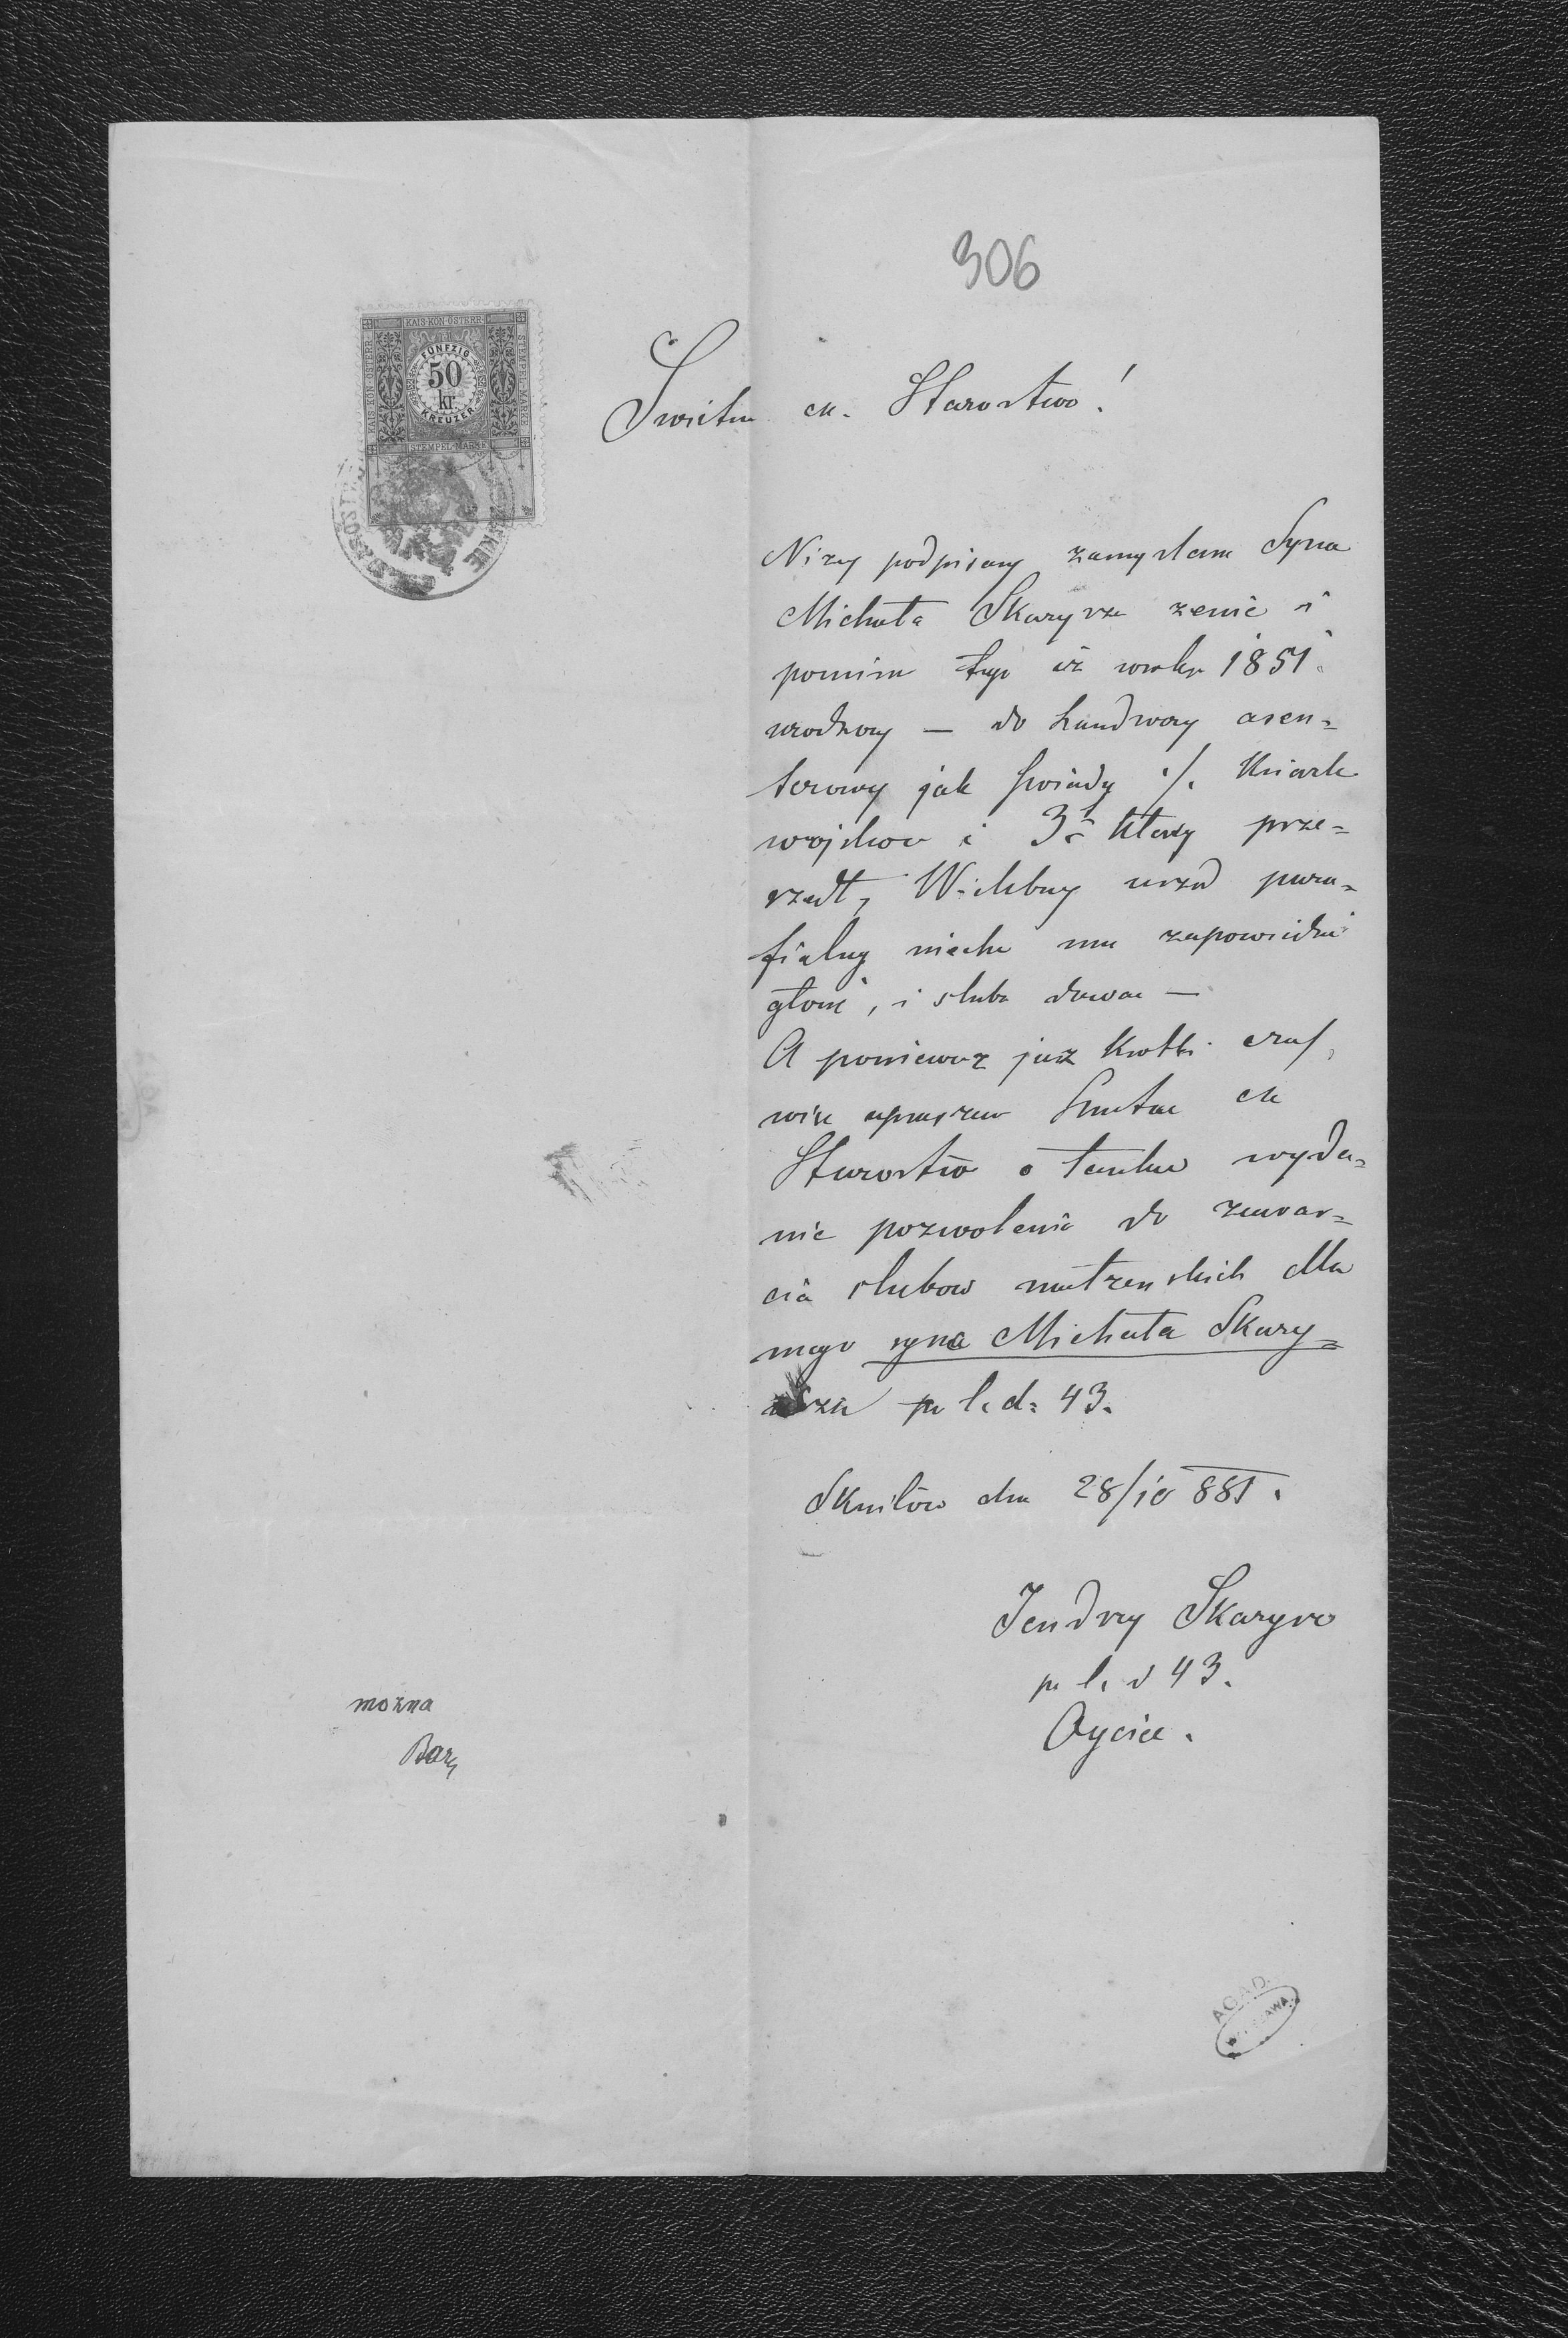 306
KAIS·KÖN·ÖSTERR·
STEMPEL-MARKE
FÜNFZIG
50
kr
KREUZER
STEMPEL-MARKE
Swietne ck. Starostwo!
Nizej podpisany zamyslam Syna
Michała Skarysza zenic i
pomimo tego iz wroku 1851.
urodzony — do Landwery asen=
terowny jak swiady ·/. Ksiazk
wojskow i 3ci klasy prze=
szedł, Wielebny urzad para=
fialny niechce mu zapowiedzi
głosić, i slubu dawac —
A poniewaz juz krotki czas,
wiec upraszam Swietne ck
Starostwo o łaskawe wyda=
nie pozwolenia do zawar=
cia slubow małzenskich dla
mego syna Michała Skary=
sza pr l. d= 43.
Skniłów dnia 28/10 881.
Jendrzy Skarysz
pr l. d 43.
Oyciec.
mozna
A.G.A.D.
WARSZAWA